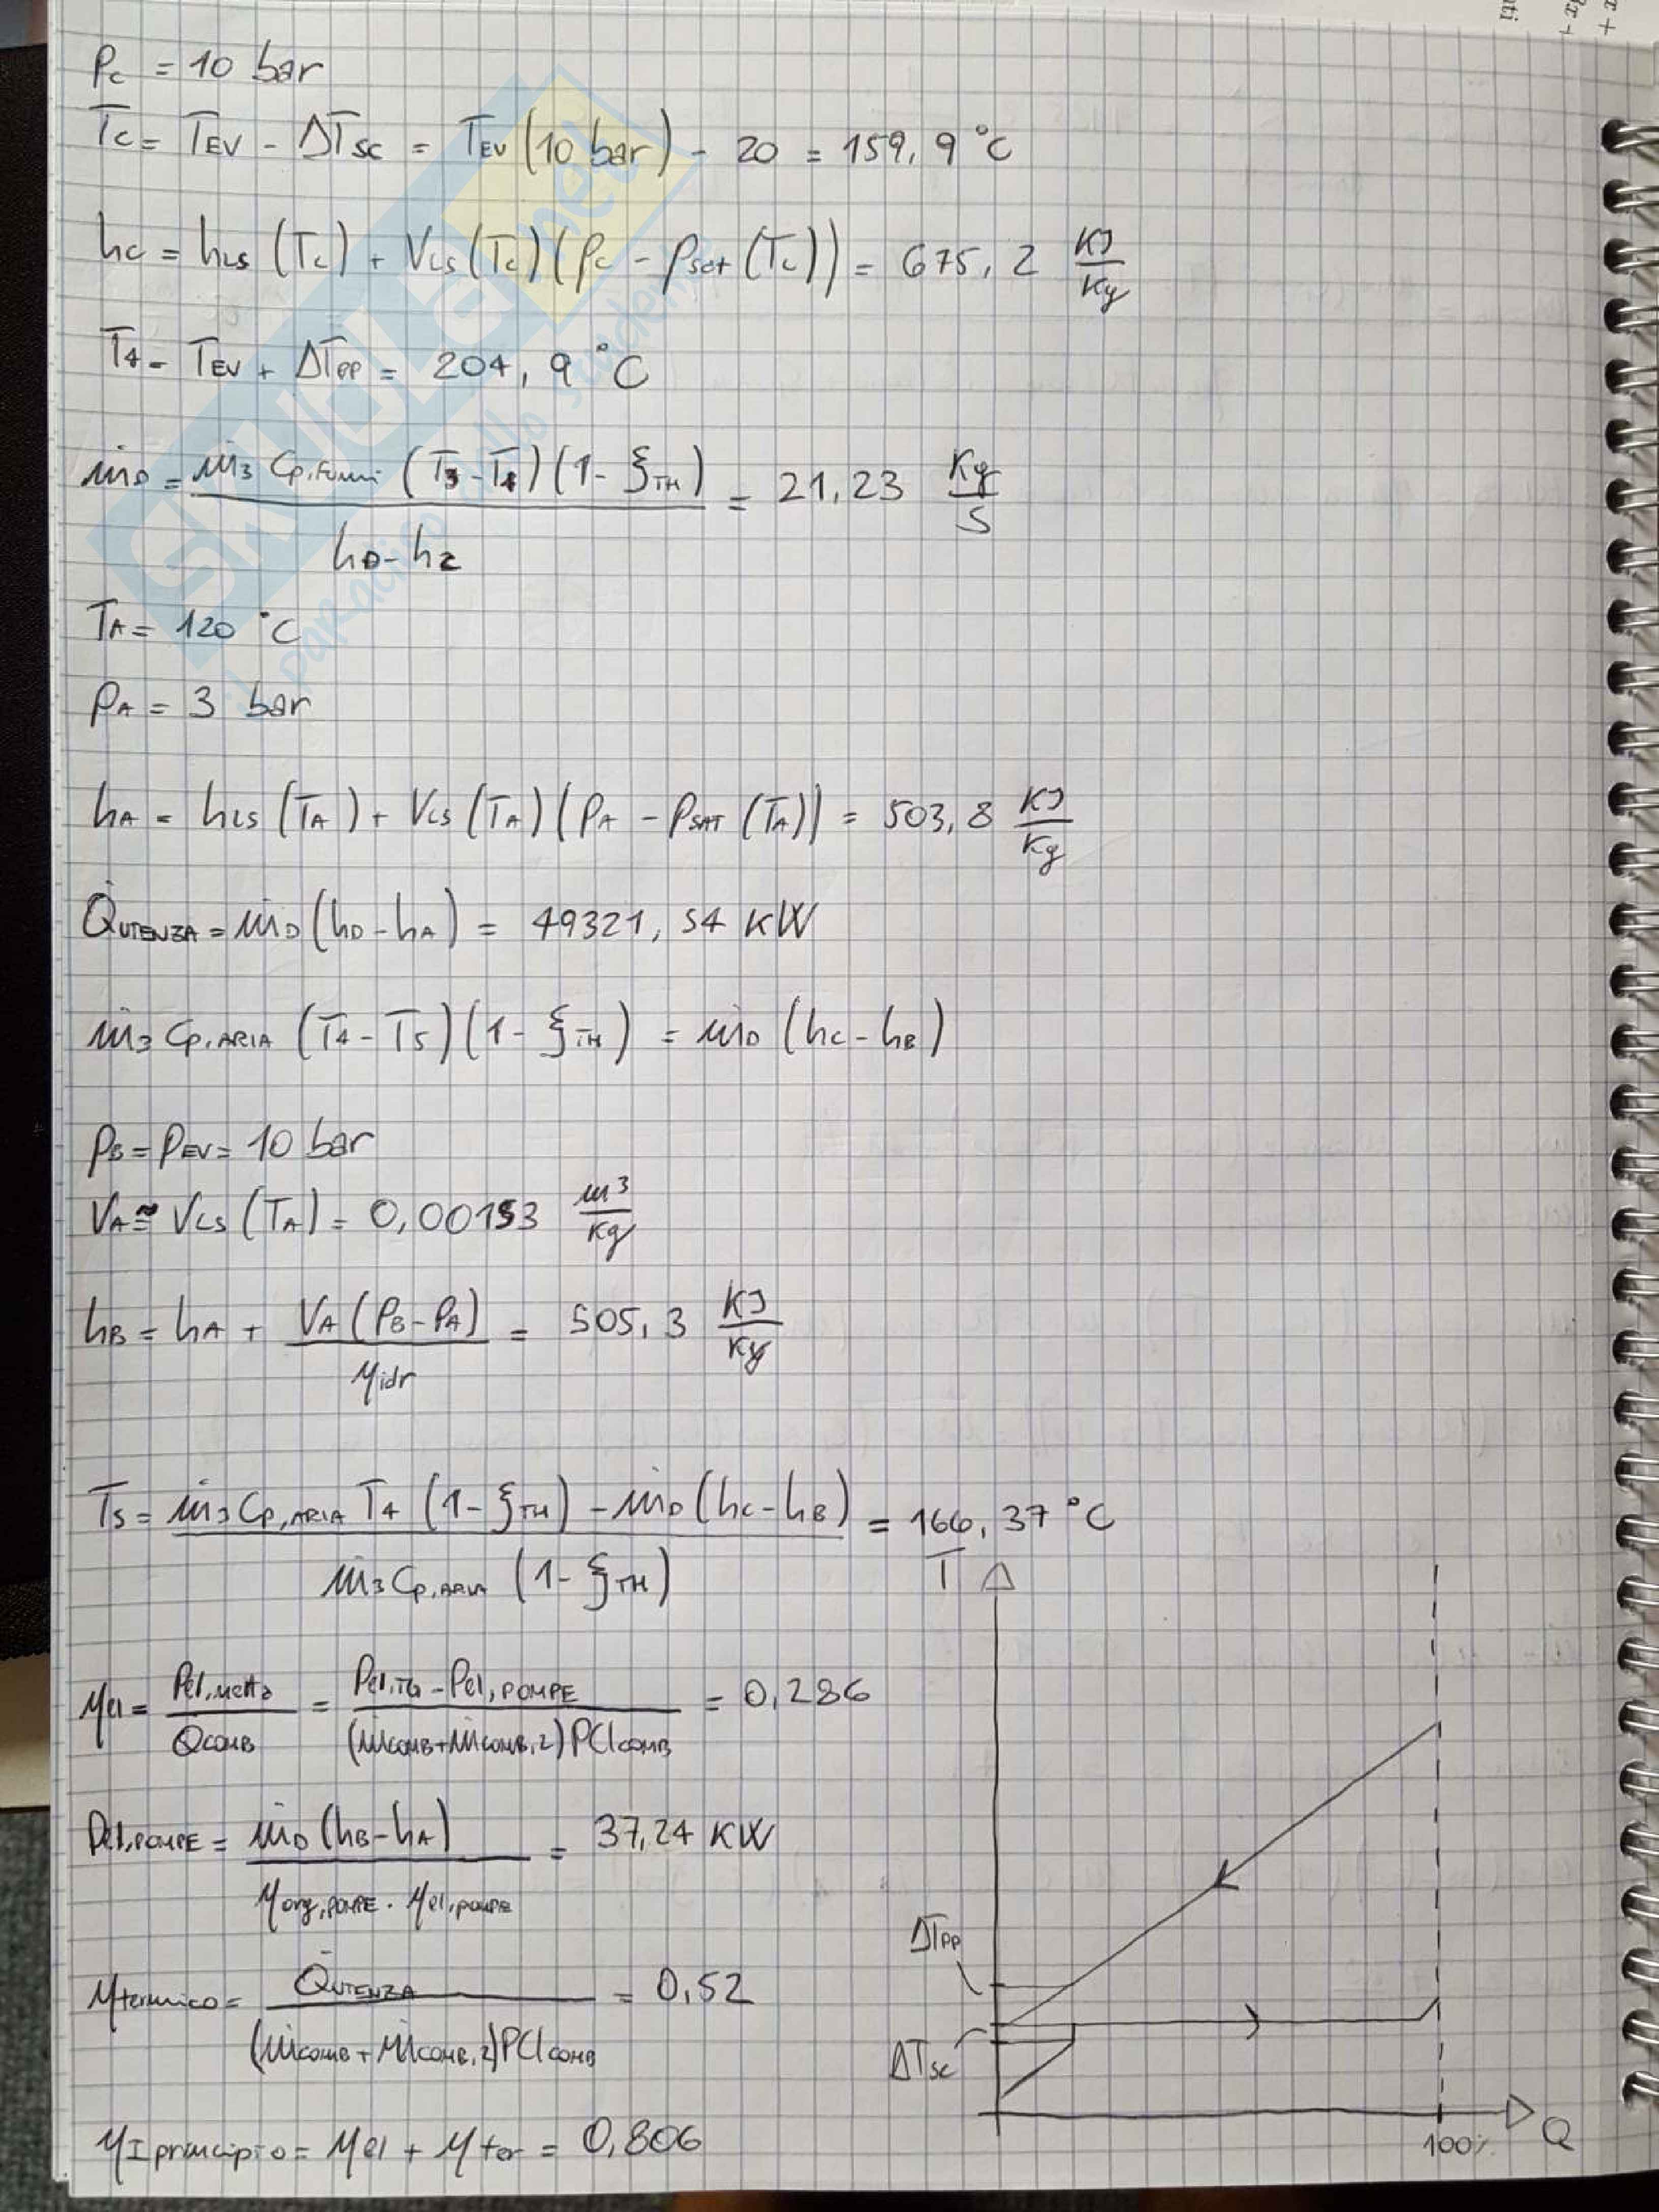 Pc = 10 bar
Tc = TEV - ΔTSC = TEV (10 bar) - 20 = 159,9 °C
hc = hLS (Tc) + VLS (Tc) (Pc - Psat (Tc)) = 675,2 KJ/Kg
T4 = TEV + ΔTPP = 204,9 °C
ṁD = ṁ3 Cp,Fumi (T3 - T4) (1 - ξTH) / hD - hC = 21,23 Kg/s
TA = 120 °C
PA = 3 bar
hA = hLS (TA) + VLS (TA) (PA - PSAT (TA)) = 503,8 KJ/Kg
Q̇UTENZA = ṁD (hD - hA) = 49321,54 KW
ṁ3 Cp,ARIA (T4 - T5) (1 - ξTH) = ṁD (hC - hB)
PB = PEV = 10 bar
VA ≅ VLS (TA) = 0,00153 m³/Kg
hB = hA + VA (PB - PA) / ηidr = 505,3 KJ/Kg
T5 = ṁ3 Cp,ARIA T4 (1 - ξTH) - ṁD (hC - hB) / ṁ3 Cp,ARIA (1 - ξTH) = 166,37 °C
T
ηel = Pel,netta / Q̇COMB = Pel,TG - Pel,POMPE / (ṁCOMB + ṁCOMB,2) PCICOMB = 0,286
Pel,POMPE = ṁD (hB - hA) / ηorg,POMPE · ηel,POMPE = 37,24 KW
ΔTPP
ηtermico = Q̇UTENZA / (ṁCOMB + ṁCOMB,2) PCICOMB = 0,52
ΔTSC
ηI principio = ηel + ηter = 0,806
100%
Q
SKUOLA.net
il paradiso dello studente